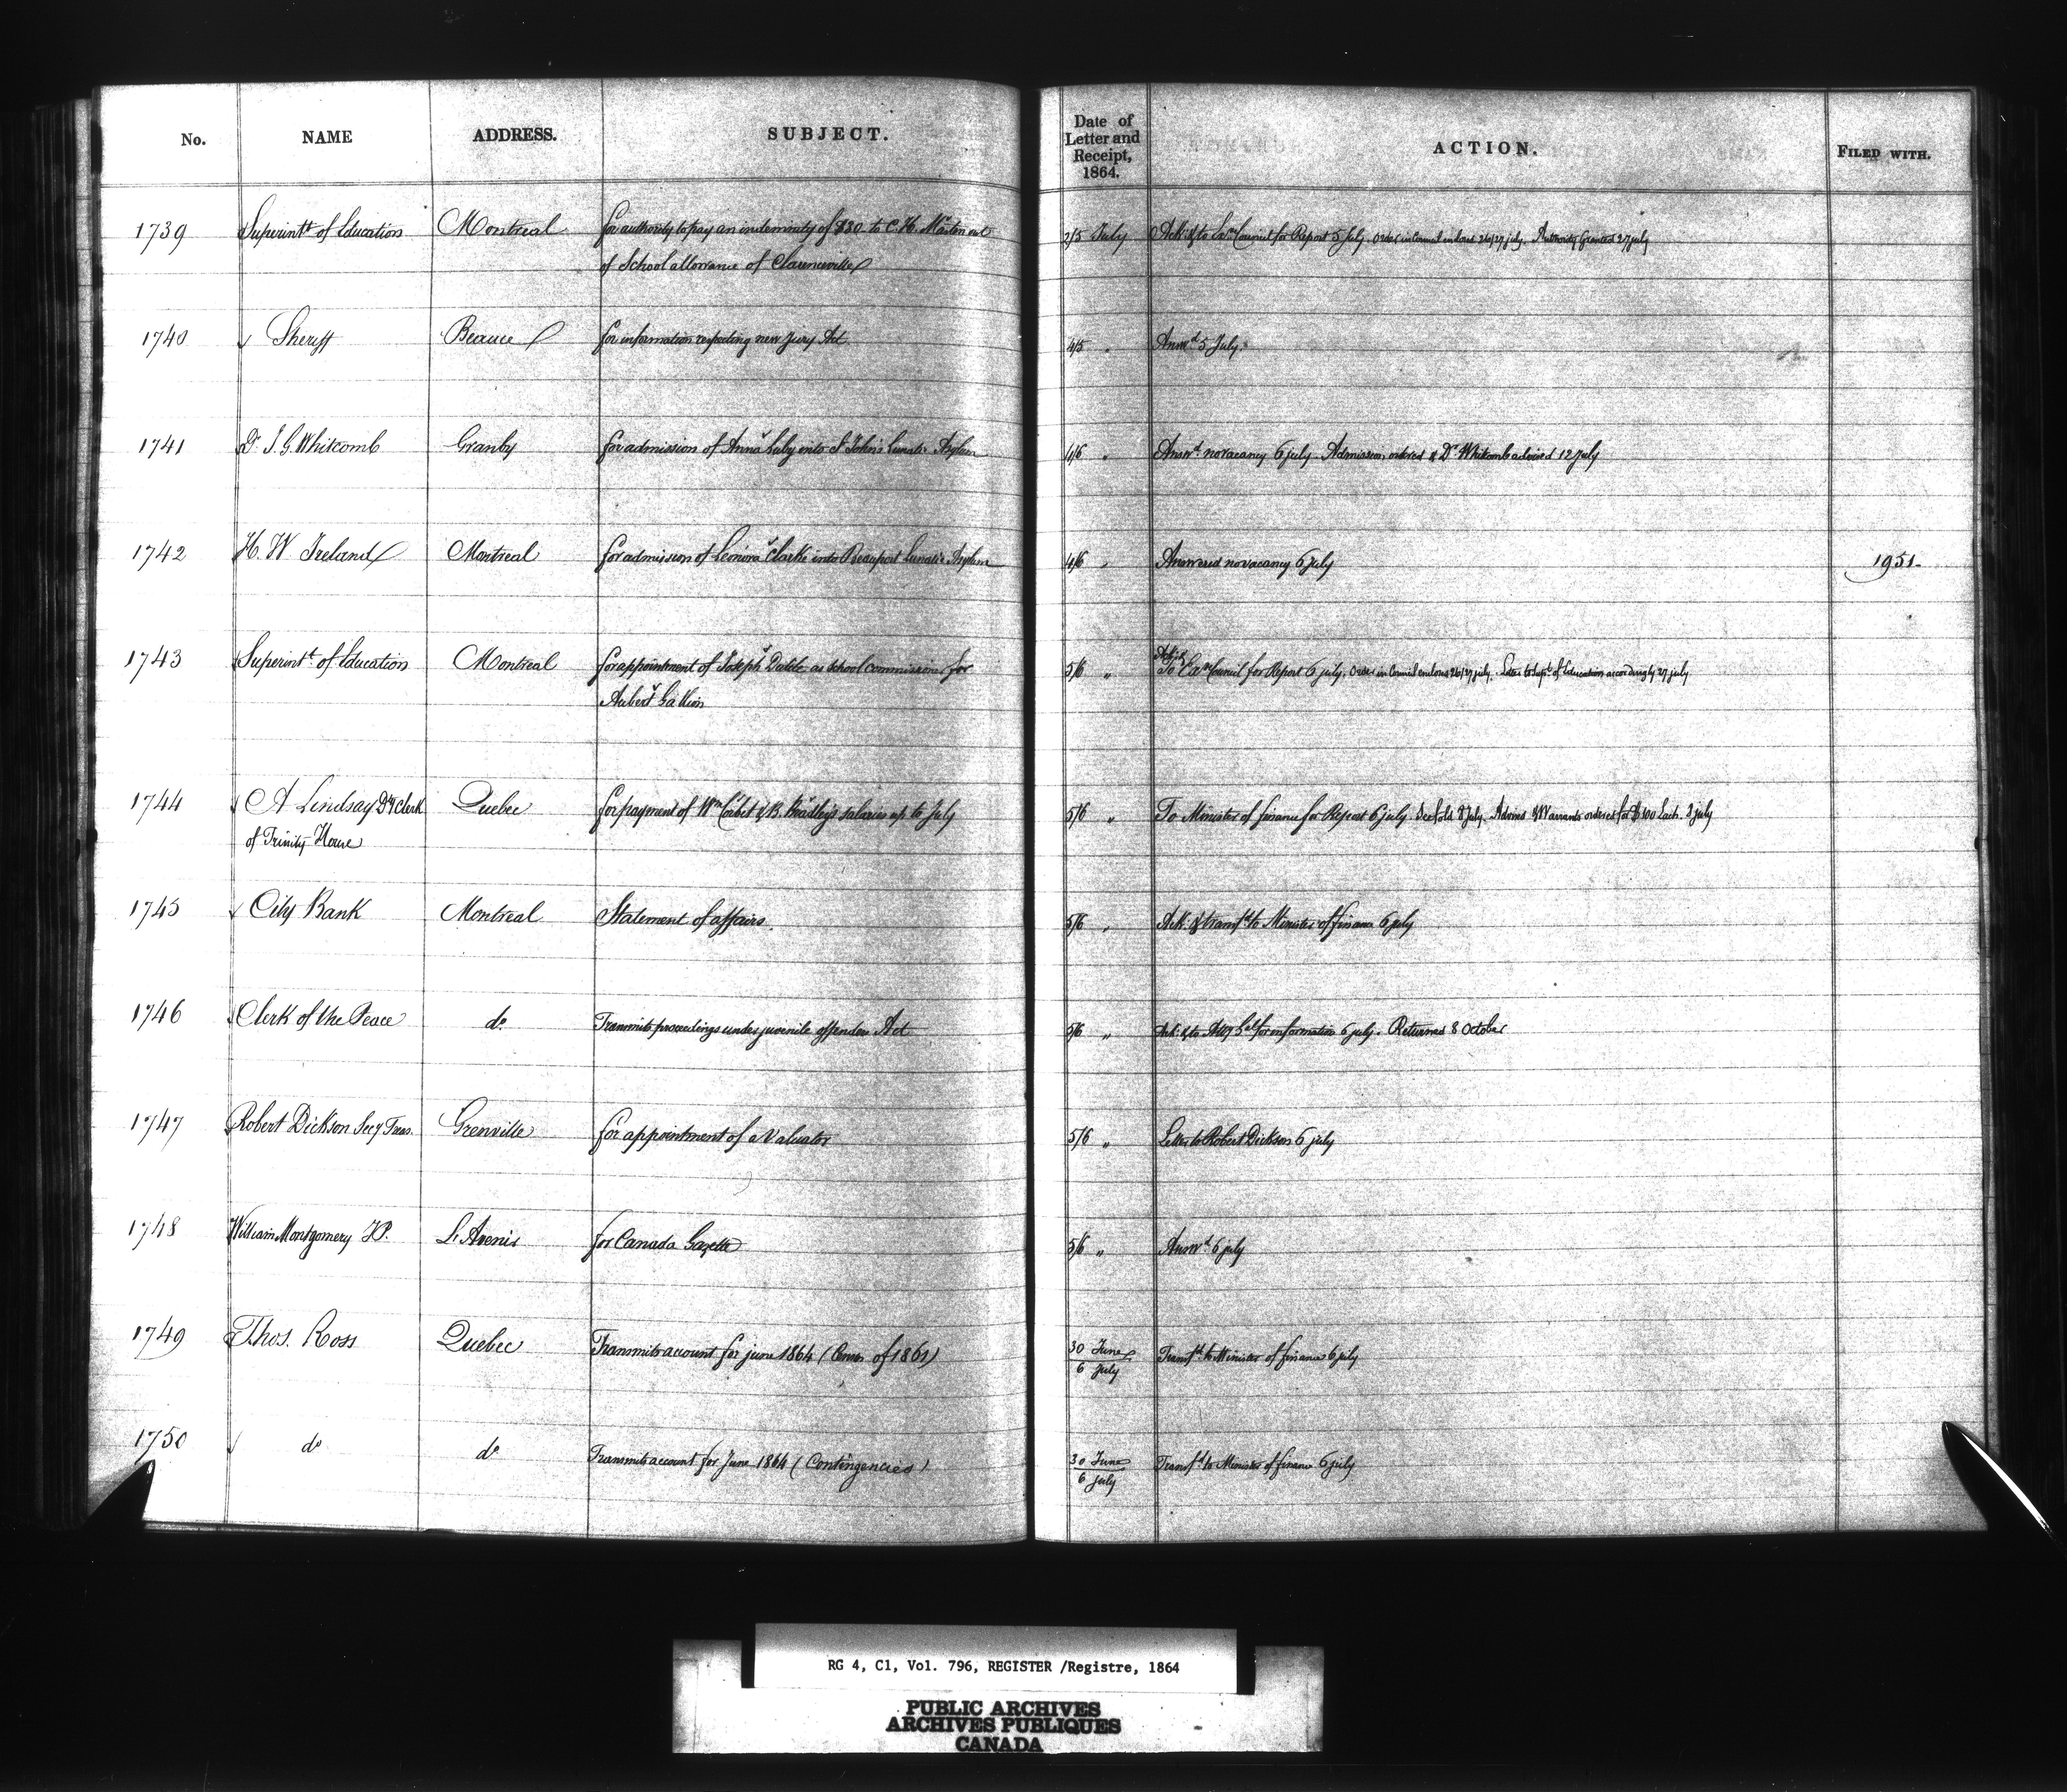 No. NAME ADDRESS. SUBJECT. Date of Letter and Receipt, 1864. ACTION. FILED WITH.
1739 Superintt of Education Montreal for authority to pay an indemnity of $30 to C. H. Martin out 2/5 July Ack. & to Exve Council for Report 5 July. Order in Council enclosed 26/27 july. Authority Granted 27 july
of School allowance of Clarenceville
1740 Sheriff Beauce for information respecting new jury Act 4/5 " Answd 5 July.
1741 Dr S. G. Whitcomb Granby for admission of Anna Luby into St Johns Lunatic Asylum 4/6 " Answd no vacancy 6 july. Admission ordered & Dr Whitcomb advised 12 july
1742 H. W Ireland Montreal for admission of Leonora Clarke into Beauport Lunatic Asylum 4/6 " Answered no vacancy 6 july 1951.
1743 Superintt of Education Montreal for appointment of Joseph as school commissioner for 5/6 " Ack. & To Exve Council for Report 6 july. Order in Council enclosed 26/27 july. Letter to Supt of Education accordingly 27 july
Aubert Gallion
1744 A Lindsay Dy Clerk Quebec for payment of Wm Corbet & B. Bradley's salaries up to July 5/6 " To Minister of finance for Report 6 july. 8 July. Advised & Warrants ordered for $100 Each. 8 july
of Trinity House
1745 City Bank Montreal Statement of affairs. 5/6 " Ack. & transfd to Minister of finance 6 july
1746 Clerk of the Peace do Transmits proceedings under juvenile offenders Act 5/6 " Ack. & to Atty Gal for information 6 july. Returned 8 October
1747 Robert Dickson Secy Treas. Grenville for appointment of a Valuator 5/6 " Letter to Robert Dickson 6 july
1748 William Montgomery J.P. L'Avenir for Canada Gazette 5/6 " Answd 6 july
1749 Thos. Ross Quebec Transmits account for june 1864 (Census of 1861) 30 June / 6 july Transfd to Minister of finance 6 july
1750 do do Transmits account for June 1864 (Contingencies) 30 June / 6 july Transfd to Minister of finance 6 july
RG 4, C1, Vol. 796, REGISTER /Registre, 1864
PUBLIC ARCHIVES
ARCHIVES PUBLIQUES
CANADA